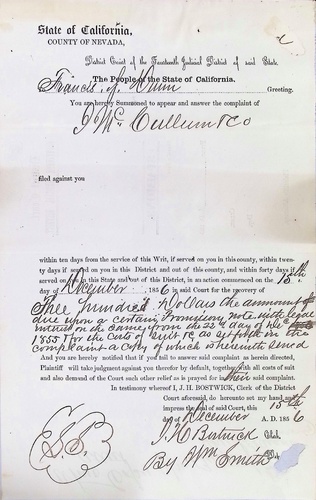 State of California,
COUNTY OF NEVADA,
District Court of the Fourteenth Judicial District of said State.
The People of the State of California.
Francis J. Dunn Greeting.
You are hereby Summoned to appear and answer the complaint of
J Mc Cullum & Co
filed against you
within ten days from the service of this Writ, if served on you in this county, within twen-
ty days if served on you in this District and out of this county, and within forty days if
served on you in this State and out of this District, in an action commenced on the 15th
day of December 1856 in said Court for the recovery of
Three hundred Dollars the amount of
due upon a certain Promissory note with legal
interest on the same from the 23d day of Dec
1855 & for the Costs of suit &c as set forth in the
complaint a Copy of which is herewith served
And you are hereby notified that if you fail to answer said complaint as herein directed,
Plaintiff will take judgment against you therefor by default, together with all costs of suit
and also demand of the Court such other relief as is prayed for in their said complaint.
In testimony whereof I, J. H. BOSTWICK, Clerk of the District
Court aforesaid, do hereunto set my hand and
impress the seal of said Court, this 15th
day of December A. D. 1856
J. H. Bostwick Clerk.
By Wm Smith